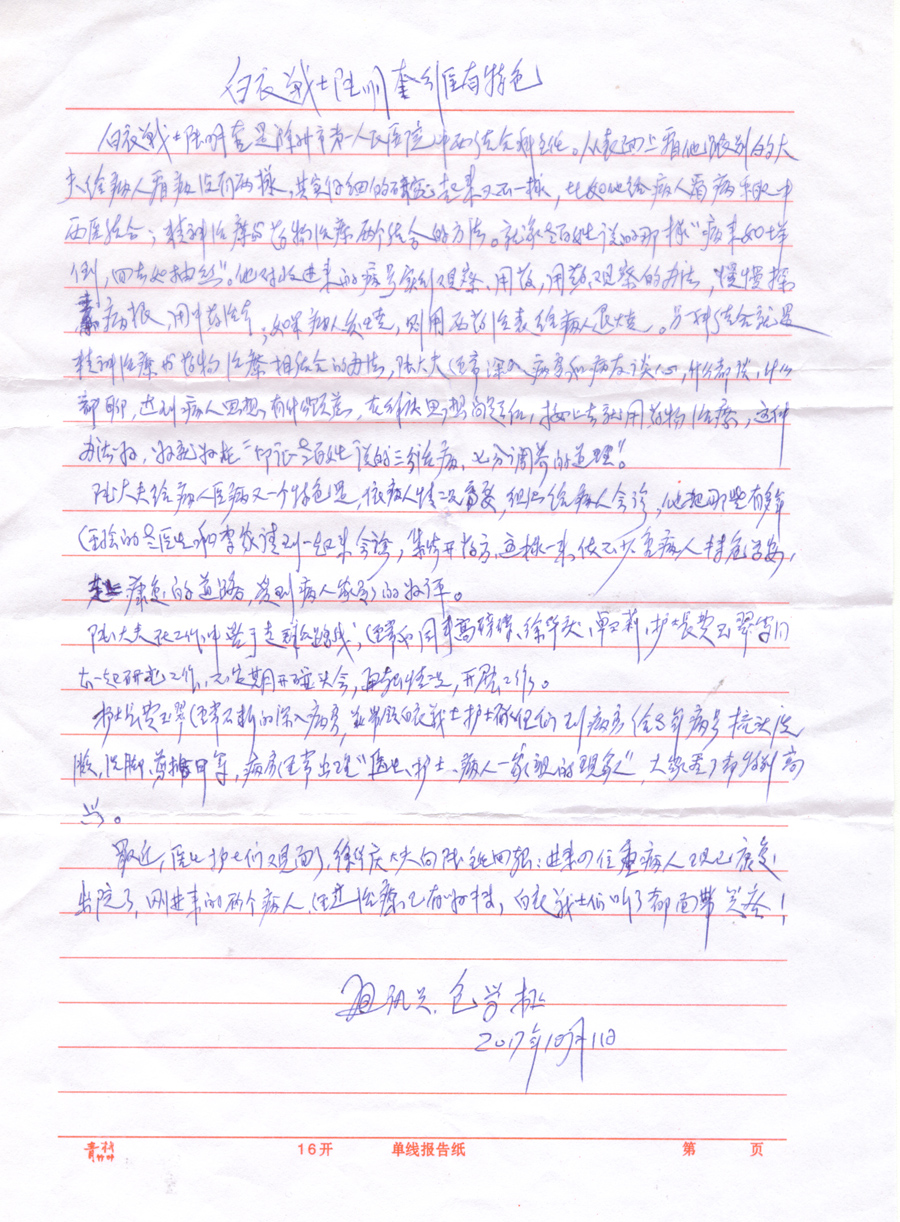 白衣战士陆明奎引医有特色
白衣战士陆明奎是 市第一人民医院中西结合科主任。从表面上看他跟别的大
夫给病人看病没有两样,其实仔细的 起来又不一样,比如他给病人看病采取中
西医结合;精神治疗与药物治疗两个结合的方法。就象老百姓说的那样"病来如山
倒,回去如抽丝"。他对收进来的病号实行观察、用药,用药、观察的办法,慢慢摸
病根,用中药治 ;如果病人发烧,则用西药 给病人退烧。另一种结合就是
精神治疗与药物治疗相结合的办法,陆大夫经常深入病房和病友谈心,什么都谈,什么
都聊,达到病人思想有什么 ,在 思想 ,接下去就用药物治疗,这种
办法好, 印证老百姓说的三分治病,七分调养的道理"。
陆大夫给病人医病又一个特色是,依病人情况需要,组织给病人会诊,他把那些有多年
经验的老医生和 请到一起来会诊, 开药方,这样一来,使不少重病人转危为安,
走上康复的道路,受到病人家属的好评。
陆大夫在工作中善于走群众路线,经常和同事高 、徐华庆、单 莉、护士长费玉翠他们
在一起研究工作,不定期开碰头会, 情况,开展工作。
护士长费玉翠经常不断的深入病房,并带领白衣战士护士 们到病房给老年病号梳头洗
脸,洗脚、剪指甲等,病房经常出现"医生、护士、病人一家亲的现象",大家看了都特别高
兴。
最近,医生护士们又见面了,徐华庆大夫向陆 回报:进来的 位重病人现已康复
出院了,刚进来的两个病人,经过治疗已有好转,白衣战士们听了都面带笑 !
通讯员:包学
2017年10月11日
16开 单线报告纸 第 页